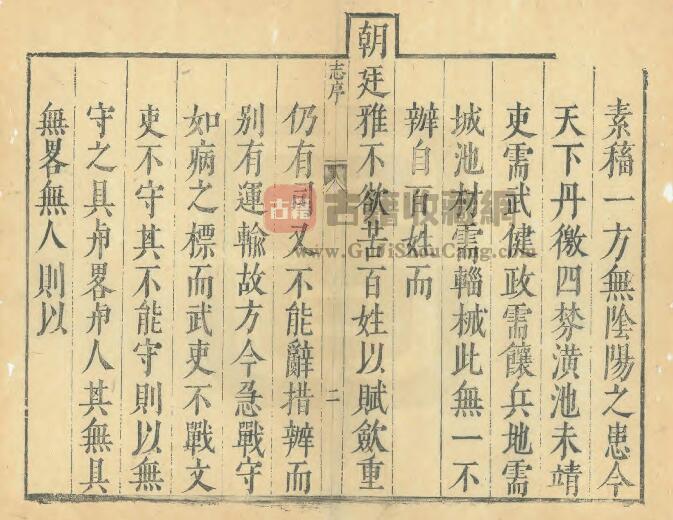 素穪一方無陰陽之患今
天下丹徼四棼潢池未靖
吏需武健政需饟兵地需
城池材需輜械此無一不
辦自百姓而
朝廷雅不欲苦百姓以賦歛重
志序
二
仍有司又不能辭措辦而
別有運輸故方今急戰守
如病之標而武吏不戰文
吏不守其不能守則以無
守之具畧人其無具
無畧無人則以
古籍
古籍收藏網
www.GuJiShouCang.com